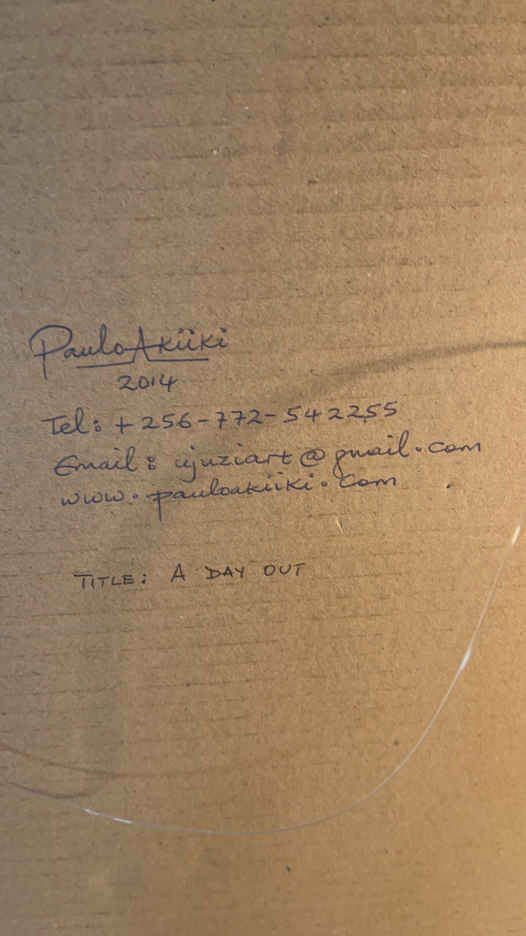 Paulo Akiiki
2014
Tel: +256-772-542255
Email: ujuziart@gmail.com
www.pauloakiiki.com
TITLE: A DAY OUT